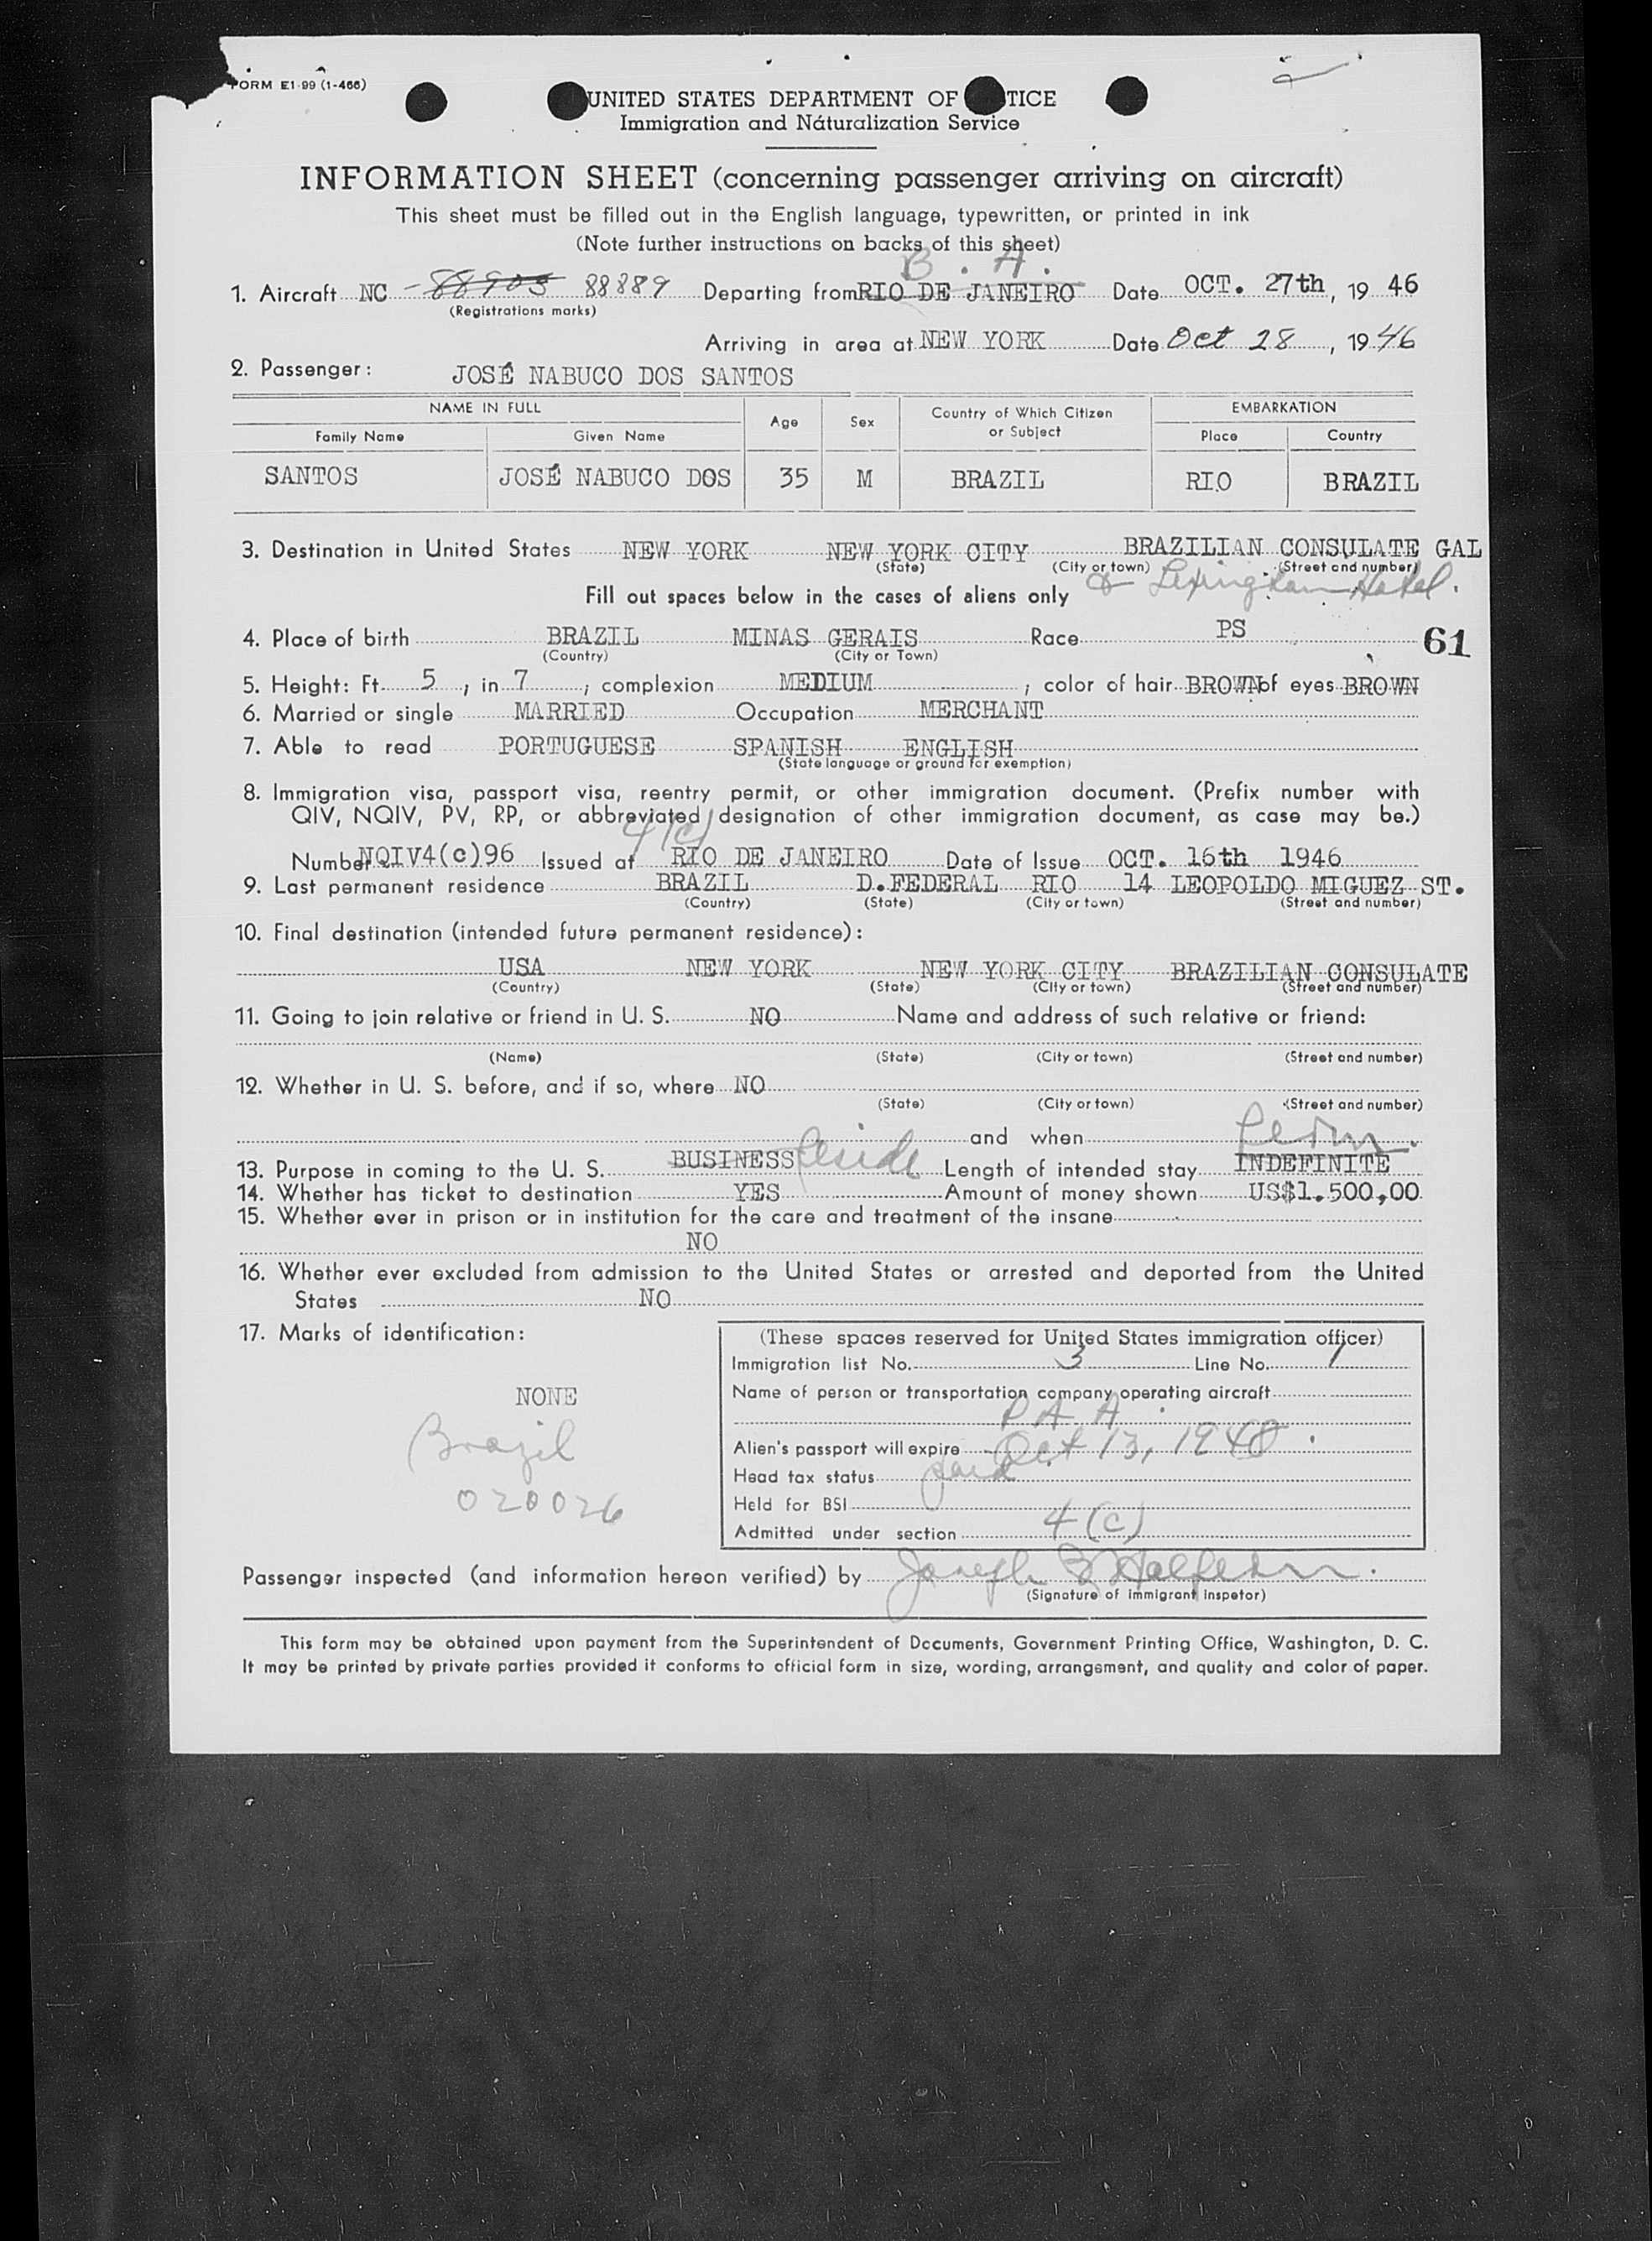 FORM E1-99 (1-466)
UNITED STATES DEPARTMENT OF TICE
Immigration and Naturalization Service
INFORMATION SHEET (concerning passenger arriving on aircraft)
This sheet must be filled out in the English language, typewritten, or printed in ink
(Note further instructions on backs of this sheet)
B. A.
1. Aircraft NC - 88905 88889 Departing from RIO DE JANEIRO Date OCT. 27th, 19 46
(Registrations marks)
Arriving in area at NEW YORK Date Oct 28, 19 46
2. Passenger: JOSÉ NABUCO DOS SANTOS
NAME IN FULL Age Sex Country of Which Citizen or Subject EMBARKATION
Family Name Given Name Place Country
SANTOS JOSÉ NABUCO DOS 35 M BRAZIL RIO BRAZIL
3. Destination in United States NEW YORK NEW YORK CITY BRAZILIAN CONSULATE GAL
(State) (City or town) (Street and number)
Lexington Hotel.
Fill out spaces below in the cases of aliens only
4. Place of birth BRAZIL MINAS GERAIS Race PS 61
(Country) (City or Town)
5. Height: Ft. 5, in 7; complexion MEDIUM; color of hair BROWN of eyes BROWN
6. Married or single MARRIED Occupation MERCHANT
7. Able to read PORTUGUESE SPANISH ENGLISH
(State language or ground for exemption)
8. Immigration visa, passport visa, reentry permit, or other immigration document. (Prefix number with
QIV, NQIV, PV, RP, or abbreviated designation of other immigration document, as case may be.)
4(c)
Number NQIV4(c)96 Issued at RIO DE JANEIRO Date of Issue OCT. 16th 1946
9. Last permanent residence BRAZIL D.FEDERAL RIO 14 LEOPOLDO MIGUEZ ST.
(Country) (State) (City or town) (Street and number)
10. Final destination (intended future permanent residence):
USA NEW YORK NEW YORK CITY BRAZILIAN CONSULATE
(Country) (State) (City or town) (Street and number)
11. Going to join relative or friend in U. S. NO Name and address of such relative or friend:
(Name) (State) (City or town) (Street and number)
12. Whether in U. S. before, and if so, where NO
(State) (City or town) (Street and number)
and when
Perm.
13. Purpose in coming to the U. S. BUSINESS Reside Length of intended stay INDEFINITE
14. Whether has ticket to destination YES Amount of money shown US$1.500,00
15. Whether ever in prison or in institution for the care and treatment of the insane
NO
16. Whether ever excluded from admission to the United States or arrested and deported from the United
States NO
17. Marks of identification:
NONE
Brazil
020026
(These spaces reserved for United States immigration officer)
Immigration list No. 3 Line No. 1
Name of person or transportation company operating aircraft
P A A.
Alien's passport will expire Oct 13, 1948.
Head tax status paid
Held for BSI
Admitted under section 4(c)
Passenger inspected (and information hereon verified) by Joseph B Halpern.
(Signature of immigrant inspetor)
This form may be obtained upon payment from the Superintendent of Documents, Government Printing Office, Washington, D. C.
It may be printed by private parties provided it conforms to official form in size, wording, arrangement, and quality and color of paper.